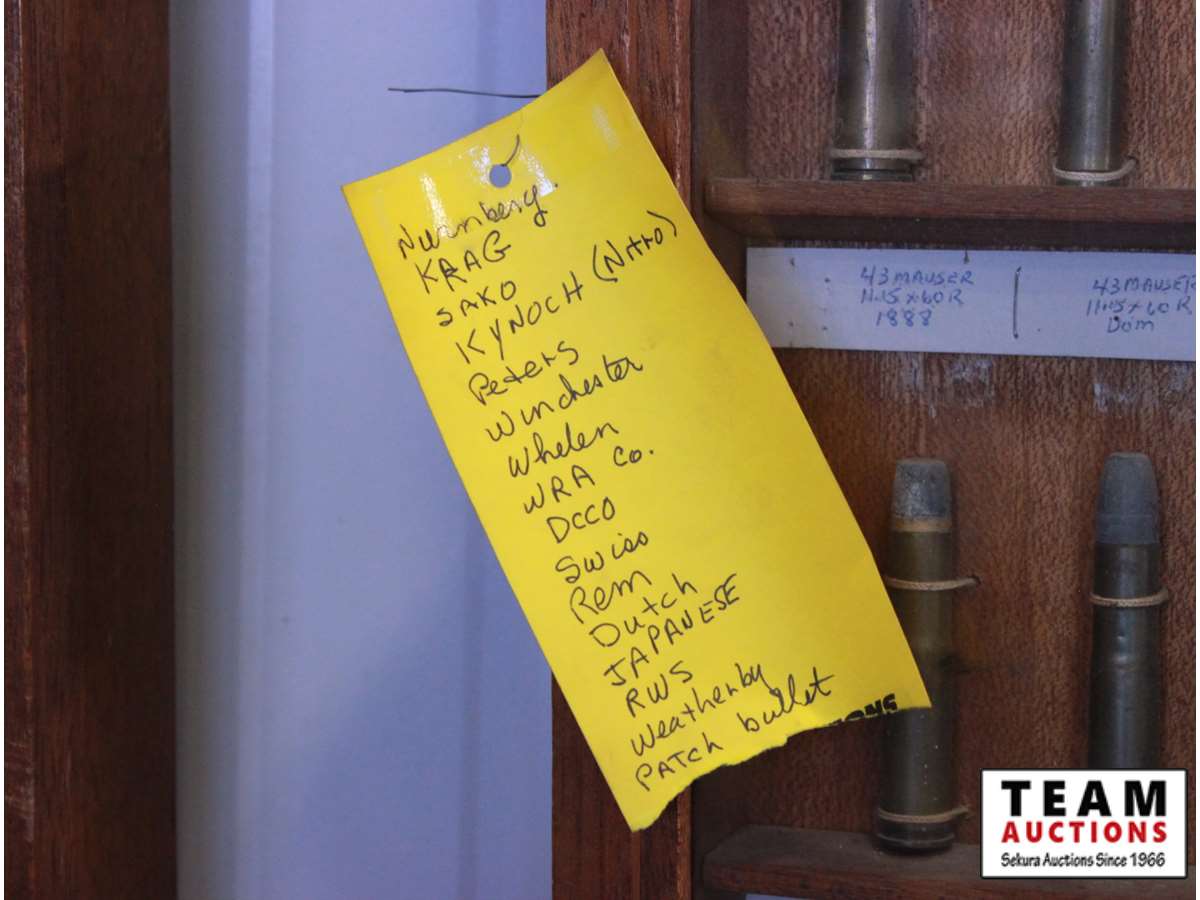 Nurnberg.
KRAG
SAKO
KYNOCH (Nitro)
Peters
Winchester
Whelen
WRA Co.
DCCO
Swiss
Rem
Dutch
JAPANESE
RWS
Weatherby
PATCH bullet
43 MAUSER
11.15 x 60 R
1888
43 MAUSER
11.15 x 60 R
Dom
TEAM
AUCTIONS
Sekura Auctions Since 1966